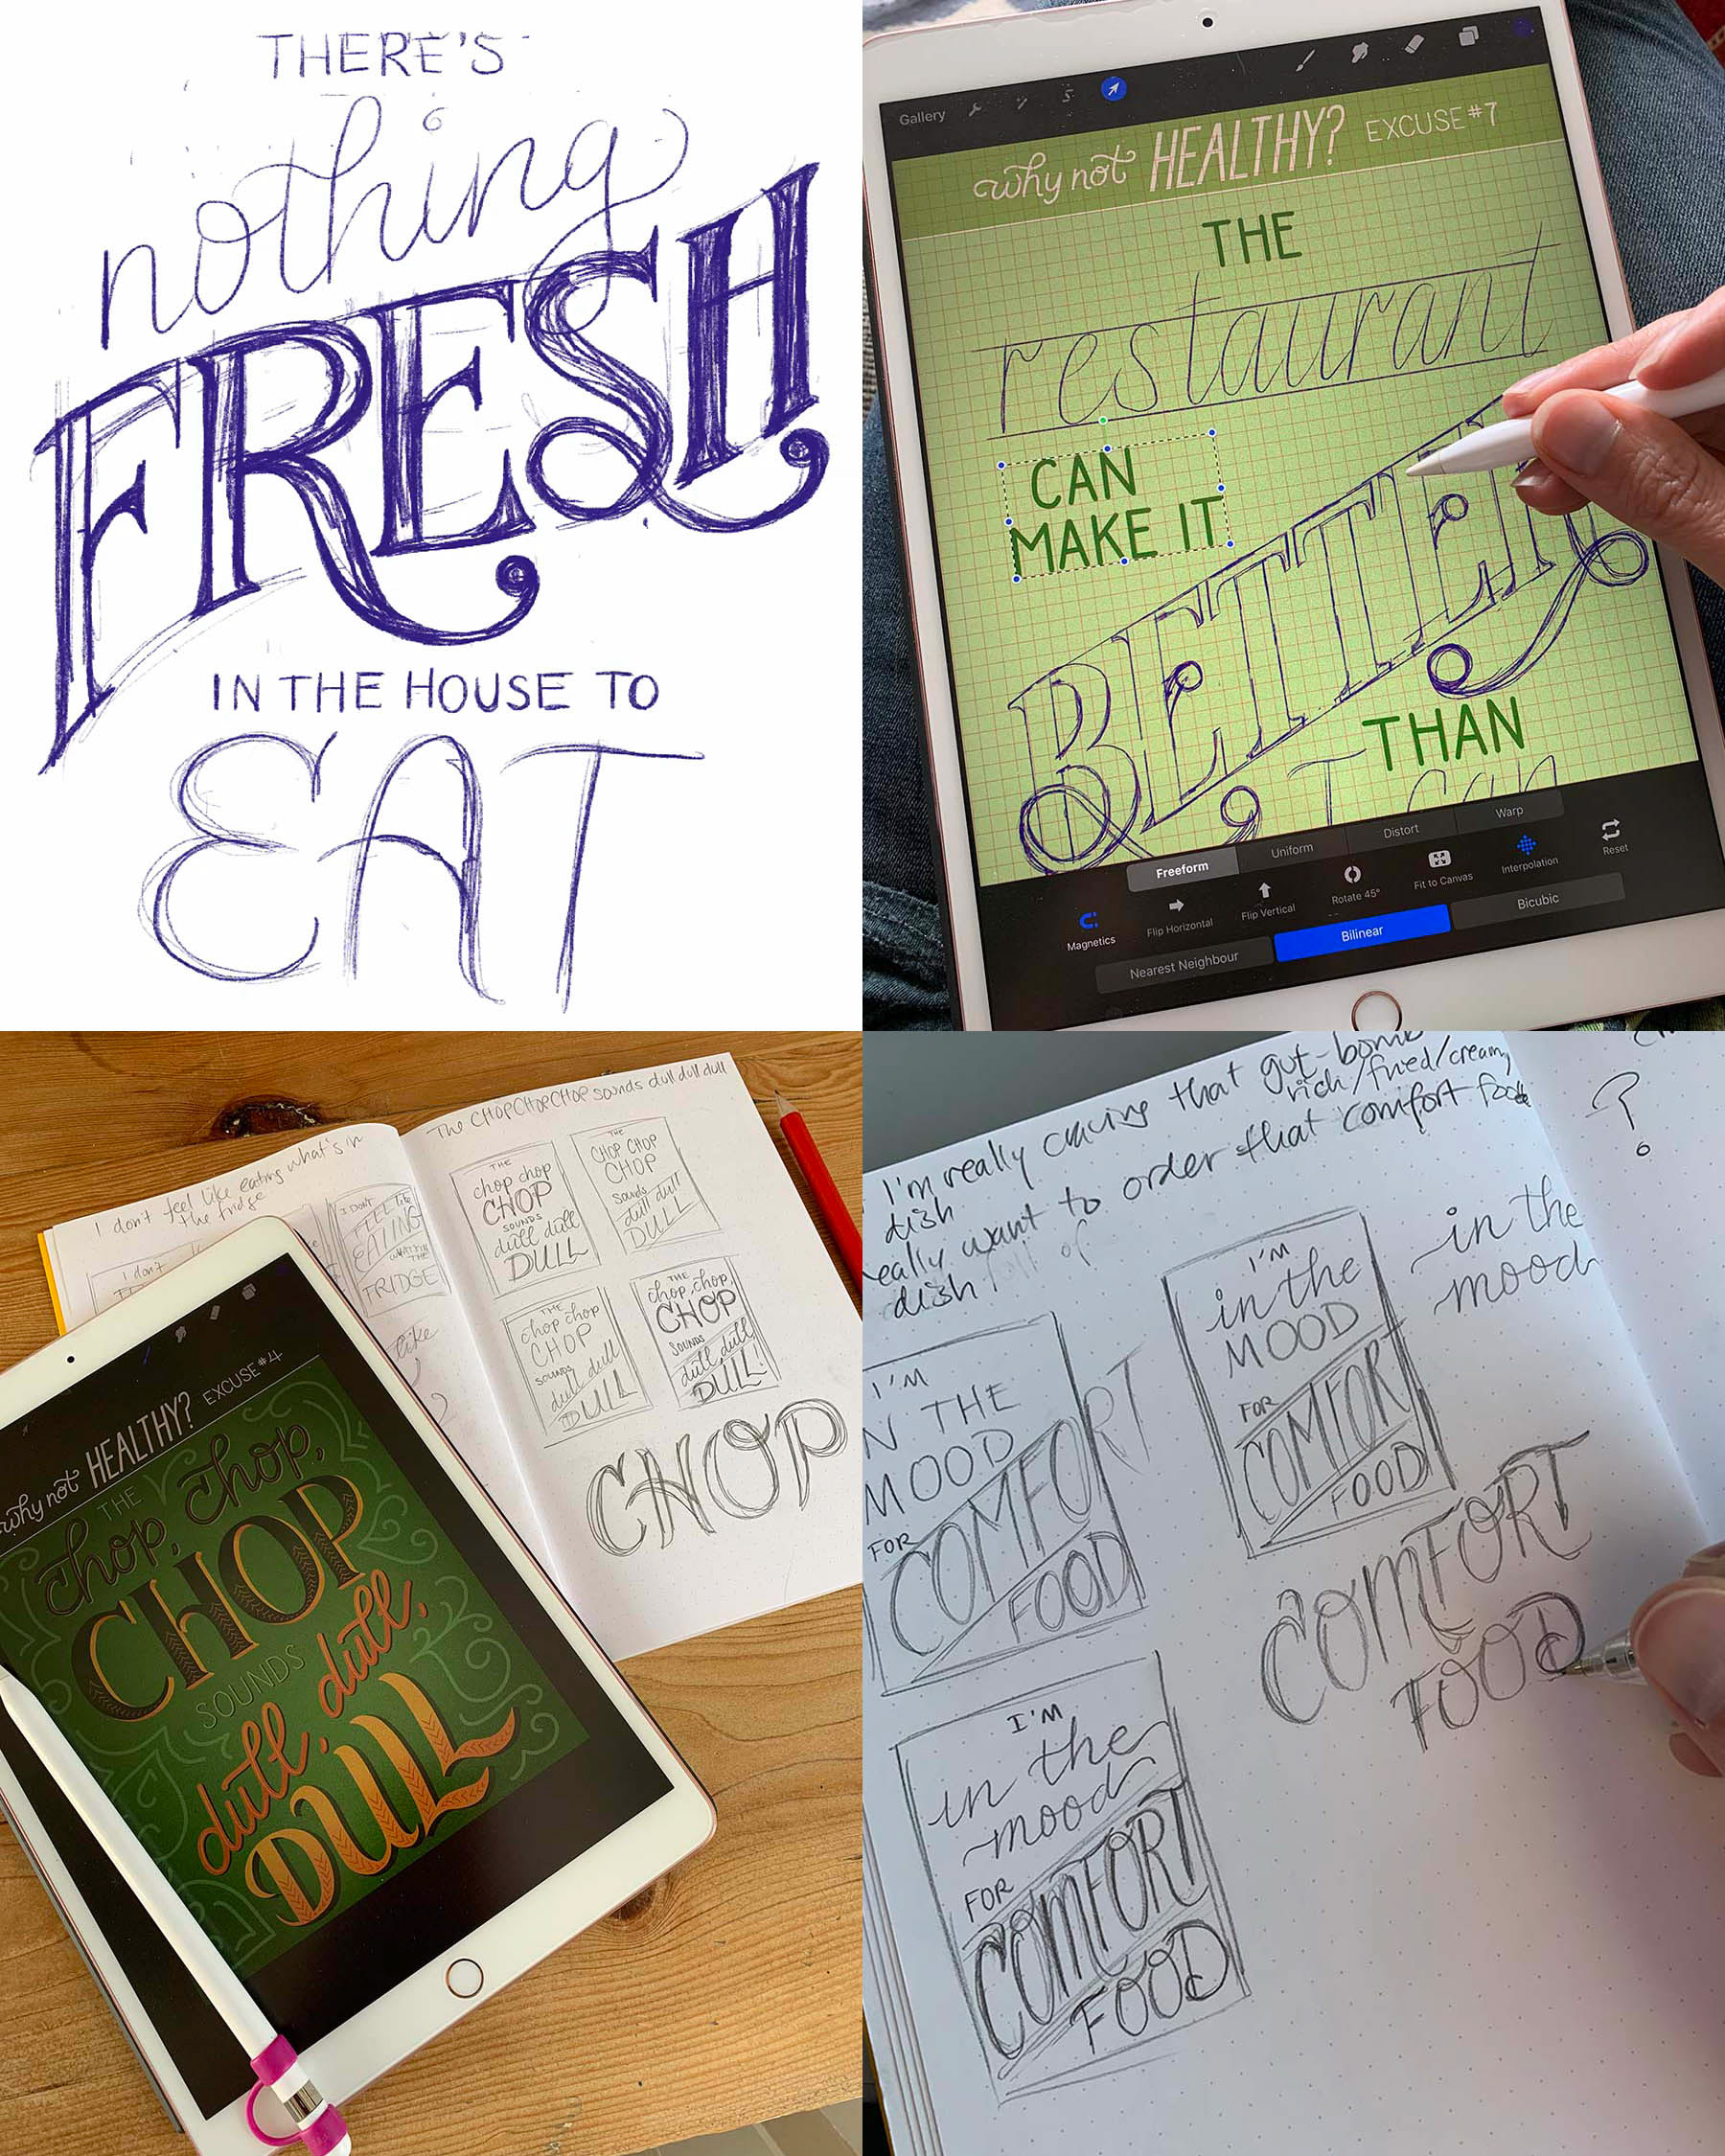 THERE'S
nothing
FRESH
IN THE HOUSE TO
EAT
Gallery
why not HEALTHY? EXCUSE #7
THE
restaurant
CAN
MAKE IT
BETTER
THAN
I can
Freeform Uniform Distort Warp
Magnetics Flip Horizontal Flip Vertical Rotate 45° Fit to Canvas Interpolation Reset
Nearest Neighbour Bilinear Bicubic
I don't feel like eating what's in
the fridge
I don't
I DON'T
FEEL like
EATING
WHAT'S IN
THE
FRIDGE
like
The CHOP CHOP CHOP sounds dull dull dull
THE
chop chop
CHOP
SOUNDS
dull dull
DULL
THE
CHOP CHOP
CHOP
Sounds
dull dull
DULL
THE
chop chop
CHOP
SOUNDS
dull dull
DULL
THE
chop, chop,
CHOP
SOUNDS
dull, dull,
DULL!
CHOP
why not HEALTHY? EXCUSE #4
THE
chop, chop,
CHOP
SOUNDS
dull, dull,
DULL
I'm really craving that gut-bomb
rich/fried/cream
dish
really want to order that comfort food
dish full of
?
I'M
IN THE
MOOD
FOR
COMFORT
FOOD
I'M
in the
MOOD
FOR
COMFORT
FOOD
in the
mood
COMFORT
FOOD
I'M
in the
mood
FOR
COMFORT
FOOD